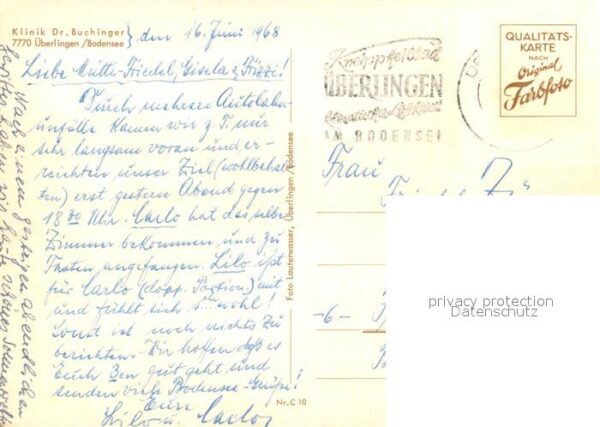 Klinik Dr. Buchinger
7770 Überlingen /Bodensee
den 16. Juni 1968
Liebe Mutti-Friedel, Gisela & Fritzi!
Durch mehrere Autobahn-
unfälle kamen wir z. T. nur
sehr langsam voran und er-
reichten unser Ziel (wohlbehal-
ten) erst gestern Abend gegen
18 30 Uhr. Carlo hat dasselbe
Zimmer bekommen und zu
Fasten angefangen. Lilo ißt
für Carlo (dopp. Portion) mit
und fühlt sich s... wohl!
Sonst ist noch nichts zu
berichten. Wir hoffen daß es
Euch 3en gut geht und
senden viele Bodensee-Grüße!
Eure
Lilo u. Carlo
Nach einem gestrigen abendlichen
haben wir heute schönes
Foto Lauterwasser, Überlingen / Bodensee
Nr. C 10
Kneippheilbad
ÜBERLINGEN
AM BODENSEE
QUALITÄTS-
KARTE
NACH
Original
Farbfoto
Frau
-6-
privacy protection
Datenschutz